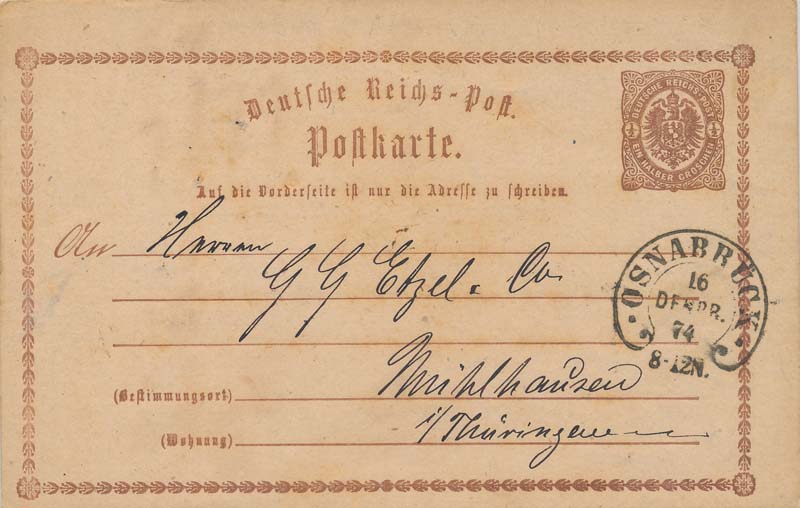 Deutsche Reichs-Post.
Postkarte.
Auf die Vorderseite ist nur die Adresse zu schreiben.
DEUTSCHE REICHS-POST
½ ½
EIN HALBER GROSCHEN
An Herren
G G Etzel & Co
OSNABRÜCK
16
DEZBR.
74
8-12N.
(Bestimmungsort) Mühlhausen
(Wohnung) i/Thüringen